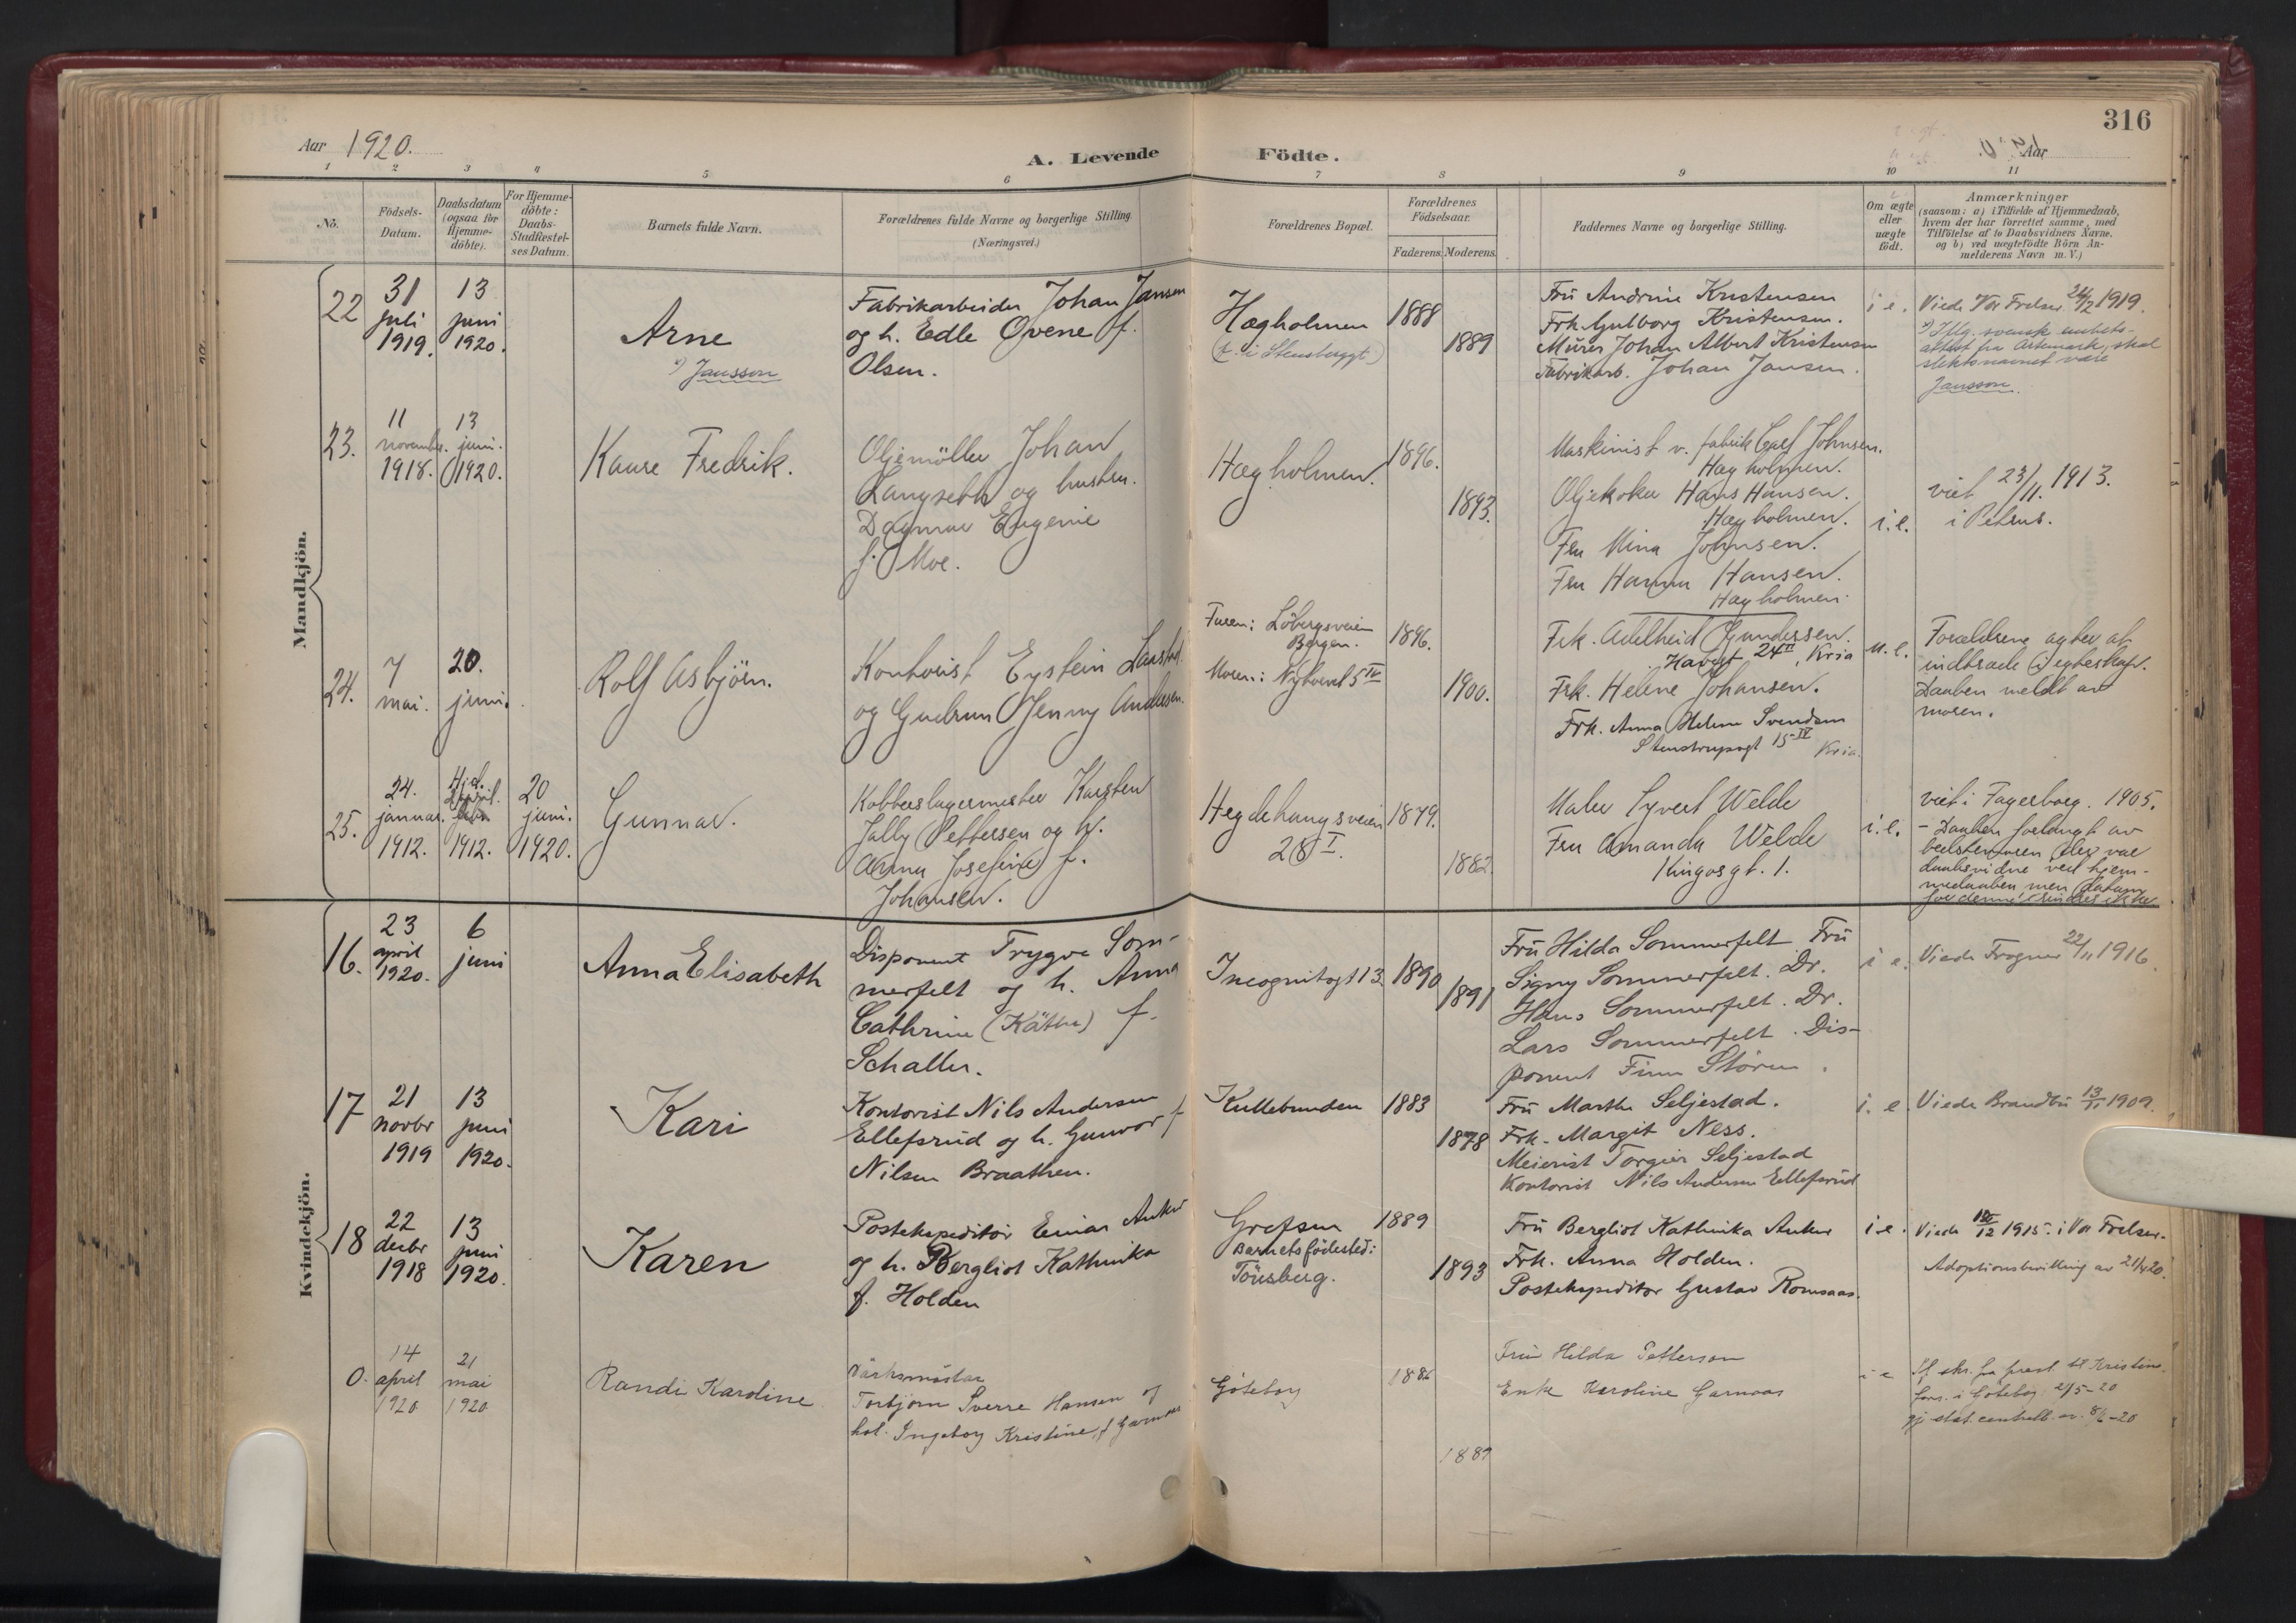 316
Aar 1920.
A. Levende Födte.
Aar
1 2 3 4 5 6 7 8 9 10 11
No.
Födsels-Datum.
Daabsdatum (ogsaa for Hjemme-döbte).
For Hjemme-döbte: Daabs-Stadfæstel-ses Datum.
Barnets fulde Navn.
Forældrenes fulde Navne og borgerlige Stilling. (Næringsvei.)
Forældrenes Bopæl.
Forældrenes Födselsaar.
Faderens. Moderens.
Faddernes Navne og borgerlige Stilling.
Om ægte eller uægte födt.
Anmærkninger
(saasom: a) i Tilfælde af Hjemmedaab,
hvem der har forrettet samme, med
Tilföielse af to Daabsvidners Navne,
og b) ved uægtefödte Börn An-
melderens Navn m. V.)
Mandkjön.
22
31 juli 1919.
13 juni 1920.
Arne
x) Jansson
Fabrikarbeider Johan Jansen
og h. Edle Ovene f.
Olsen.
Hægholmen
(f. i Stensberggt.)
1888
1889
Fru Andrine Kristensen
Frk. Gulborg Kristensen.
Murer Johan Albert Kristensen
Fabrikarb. Johan Jansen.
i e.
Viede Vor Frelser 24/2 1919.
x) Iflg. svensk embets-
attest fra Artemark, skal
slektsnavnet være
Jansson.
23.
11 november. 1918.
13 juni. 1920.
Kaare Fredrik.
Oljemöller Johan
Langseth og hustru
Dagmar Eugenie
f. Moe.
Hægholmen.
1896.
1893.
Maskinist v. fabrik Carl Johnsen.
Hægholmen.
Oljekoker Hans Hansen.
Hægholmen.
Fru Mina Johnsen.
Fru Hanna Hansen.
Hægholmen.
i. e.
viet 23/11. 1913.
i Petrus.
24.
7 mai.
20. juni.
Rolf Asbjörn.
Kontorist Eystein Laastad
og Gudrun Jenny Andersen.
Faren: Löbergsveien
Bergen.
Moren: Nytorvet 5 IV
1896.
1900.
Frk. Adelheid Gundersen.
Havegt 24 II, Kria
Frk. Helene Johansen.
Frk. Anna Helene Svendsen
Stenstrupsgt 15 IV Kria.
u. e.
Forældrene agter at
indtræde i egteskap.
Daaben meldt av
moren.
25.
24. januar. 1912.
Hjd. 1912.
20 juni. 1920.
Gunnar.
Kobberslagermester Karsten
Jally Pettersen og h.
Anna Josefine f.
Johansen.
Hegdehaugsveien
28 I.
1879.
1882.
Maler Syvert Welde
Fru Amanda Welde
Kingosgt. 1.
i. e.
viet i Fagerborg. 1905.
- Daaben forlangt av
bestemoren der var
daabsvidne ved hjem-
medaaben men datum
for denne erindres ikke
Kvindekjön.
16.
23 april 1920.
6 juni
Anna Elisabeth
Disponent Trygve Som-
merfelt og h. Anna
Cathrine (Käthe) f.
Schaller.
Incognitogt 13
1890
1891
Fru Hilda Sommerfelt. Fru
Signy Sommerfelt. Dr.
Hans Sommerfelt. Dr.
Lars Sommerfelt. Dis-
ponent Finn Stören.
i e.
Viede Frogner 22/11 1916.
17
21 novbr 1919
13 juni 1920.
Kari
Kontorist Nils Andersen
Ellefsrud og h. Gunvor f
Nilsen Braathen.
Kullebunden
1883
1878
Fru Marthe Seljestad.
Frk. Margit Ness.
Meierist Torgeir Seljestad
Kontorist Nils Andersen Ellefsrud
i. e.
Viede Brandbu 13/11 1909.
18
22 decbr 1918
13 juni 1920.
Karen
Postekspeditör Einar Anker
og h. Bergliot Kathinka
f. Holden
Grefsen
Barnets födested:
Tönsberg.
1889
1893
Fru Bergliot Kathinka Anker
Frk. Anna Holden.
Postekspeditör Gustav Romsaas.
i e.
Viede /12 1915 i Vor Frelser.
Adoptionsbevilling av 21/4 20.
0.
14 april 1920
21 mai 1920
Randi Karoline
Värksmästar
Torbjørn Sverre Hansen og
hst. Ingeborg Kristine, f Garnaas
Göteborg
1886
1889
Fru Hilda Petterson
Enke Karoline Garnaas
i e
If. skr. fra prest til Kristine
fors. i Göteborg 2/5-20
gj. stat. centralb. av 8/6-20